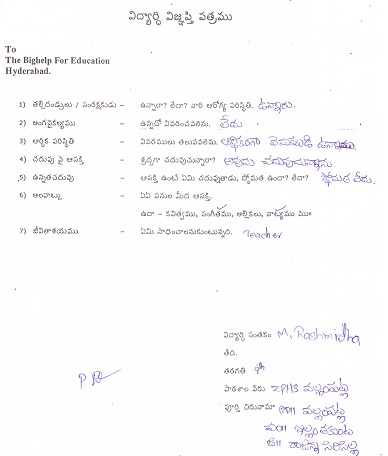 విద్యార్థి విజ్ఞప్తి పత్రము
To
The Bighelp For Education
Hyderabad.
1) తల్లిదండ్రులు / సంరక్షకుడు – ఉన్నారా? లేదా? వారి ఆరోగ్య పరిస్థితి. ఉన్నారు.
2) అంగవైకల్యము – ఉన్నచో వివరించవలెను. లేదు.
3) ఆర్థిక పరిస్థితి – వివరములు తెలుపవలెను. ఆర్థికంగా వెనుకబడి ఉన్నాము.
4) చదువు పై ఆసక్తి – శ్రద్ధగా చదువుచున్నారా? అవును చదువుచున్నాను.
5) ఉన్నతచదువు – ఆసక్తి ఉంటే ఏమి చదువుతాడు, స్తోమత ఉందా? లేదా? స్తోమత లేదు.
6) అలవాట్లు – ఏఏ పనుల మీద ఆసక్తి.
ఉదా – కవిత్వము, సంగీతము, అల్లికలు, నాట్యము మొ॥
7) జీవితాశయము – ఏమి సాధించాలనుకుంటున్నది. Teacher
విద్యార్థి సంతకం M. Rashmidha
తేది.
తరగతి
పాఠశాల పేరు ZPHS వల్లంపట్ల
పూర్తి చిరునామా గ్రా॥ వల్లంపట్ల
మం॥ ఇల్లంతకుంట
జి॥ రాజన్న సిరిసిల్ల